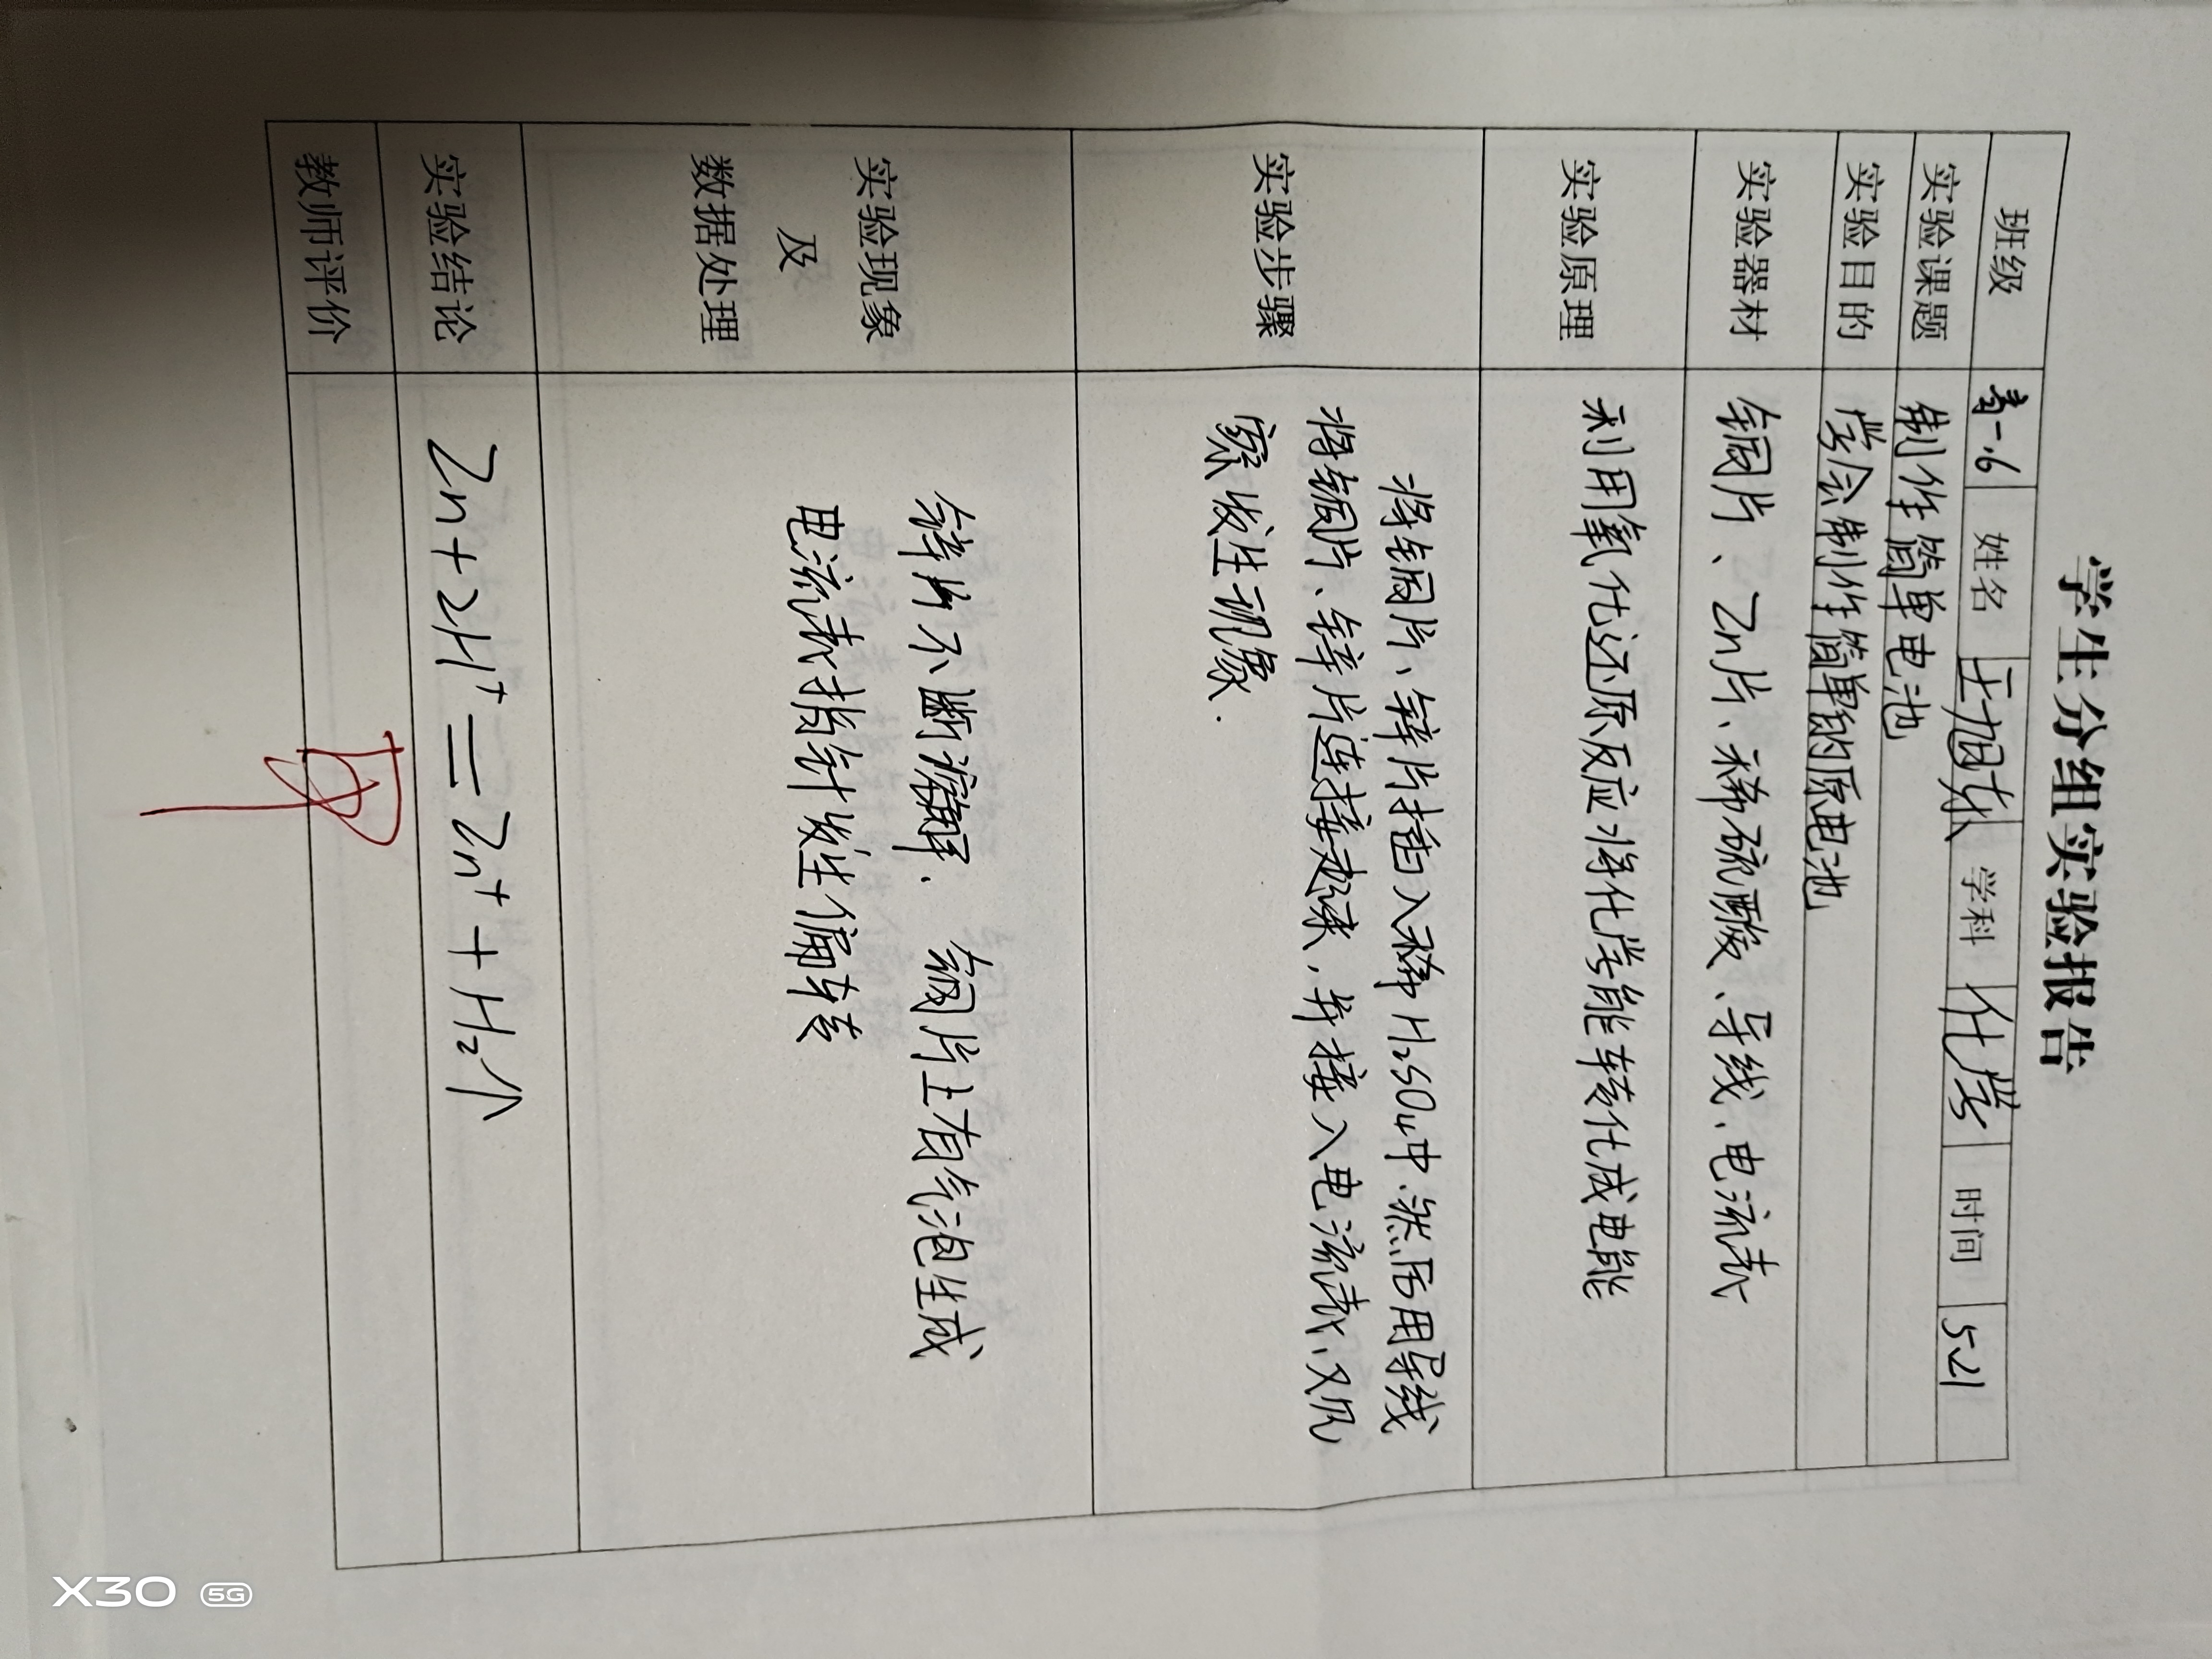 学生分组实验报告
班级 高一.6 姓名 王旭东 学科 化学 时间 5.21
实验课题 制作简单电池
实验目的 学会制作简单的原电池
实验器材 铜片、Zn片、稀硫酸、导线、电流表
实验原理 利用氧化还原反应将化学能转化成电能
实验步骤
将铜片、锌片插入稀H₂SO₄中.然后用导线
将铜片、锌片连接起来,并接入电流表,观
察发生现象.
实验现象
及
数据处理
锌片不断溶解. 铜片上有气泡生成
电流表指针发生偏转
实验结论 Zn + 2H⁺ = Zn⁺ + H₂↑
教师评价
X30 5G